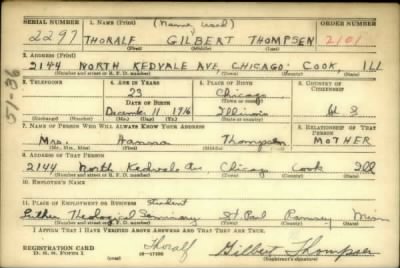 SERIAL NUMBER 1. NAME (Print) (Name used) ORDER NUMBER
2297 THORALF GILBERT THOMPSEN 2101
(First) (Middle) (Last)
2. ADDRESS (Print)
2144 NORTH KEDVALE AVE, CHICAGO, COOK, ILL
(Number and street or R. F. D. number) (Town) (County) (State)
3. TELEPHONE 4. AGE IN YEARS 5. PLACE OF BIRTH 6. COUNTRY OF CITIZENSHIP
23 Chicago
DATE OF BIRTH (Town or county)
December 11 1916 Illinois U.S
(Exchange) (No.) (Mo.) (Day) (Yr.) (State or country)
7. NAME OF PERSON WHO WILL ALWAYS KNOW YOUR ADDRESS 8. RELATIONSHIP OF THAT PERSON
Mrs. Hanna Thompsen MOTHER
(Mr., Mrs., Miss) (First) (Middle) (Last)
9. ADDRESS OF THAT PERSON
2144 North Kedvale Av, Chicago Cook Ill
(Number and street or R. F. D. number) (Town) (County) (State)
10. EMPLOYER'S NAME
11. PLACE OF EMPLOYMENT OR BUSINESS Student
Luther Theological Seminary St Paul Ramsey Minn
(Number and street or R. F. D. number) (Town) (County) (State)
I AFFIRM THAT I HAVE VERIFIED ABOVE ANSWERS AND THAT THEY ARE TRUE.
REGISTRATION CARD Thoralf Gilbert Thompsen
D. S. S. Form 1 (Registrant's signature)
51-36